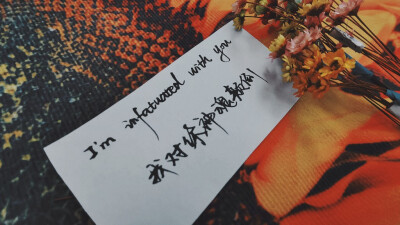 I'm infatuated with you
我对你神魂颠倒